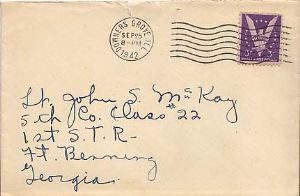 DOWNERS GROVE, ILL.
SEP 25
8 - PM
1942
Lt. John S. McKay
5th Co. Class #22
1st S.T.R.
Ft. Benning
Georgia.